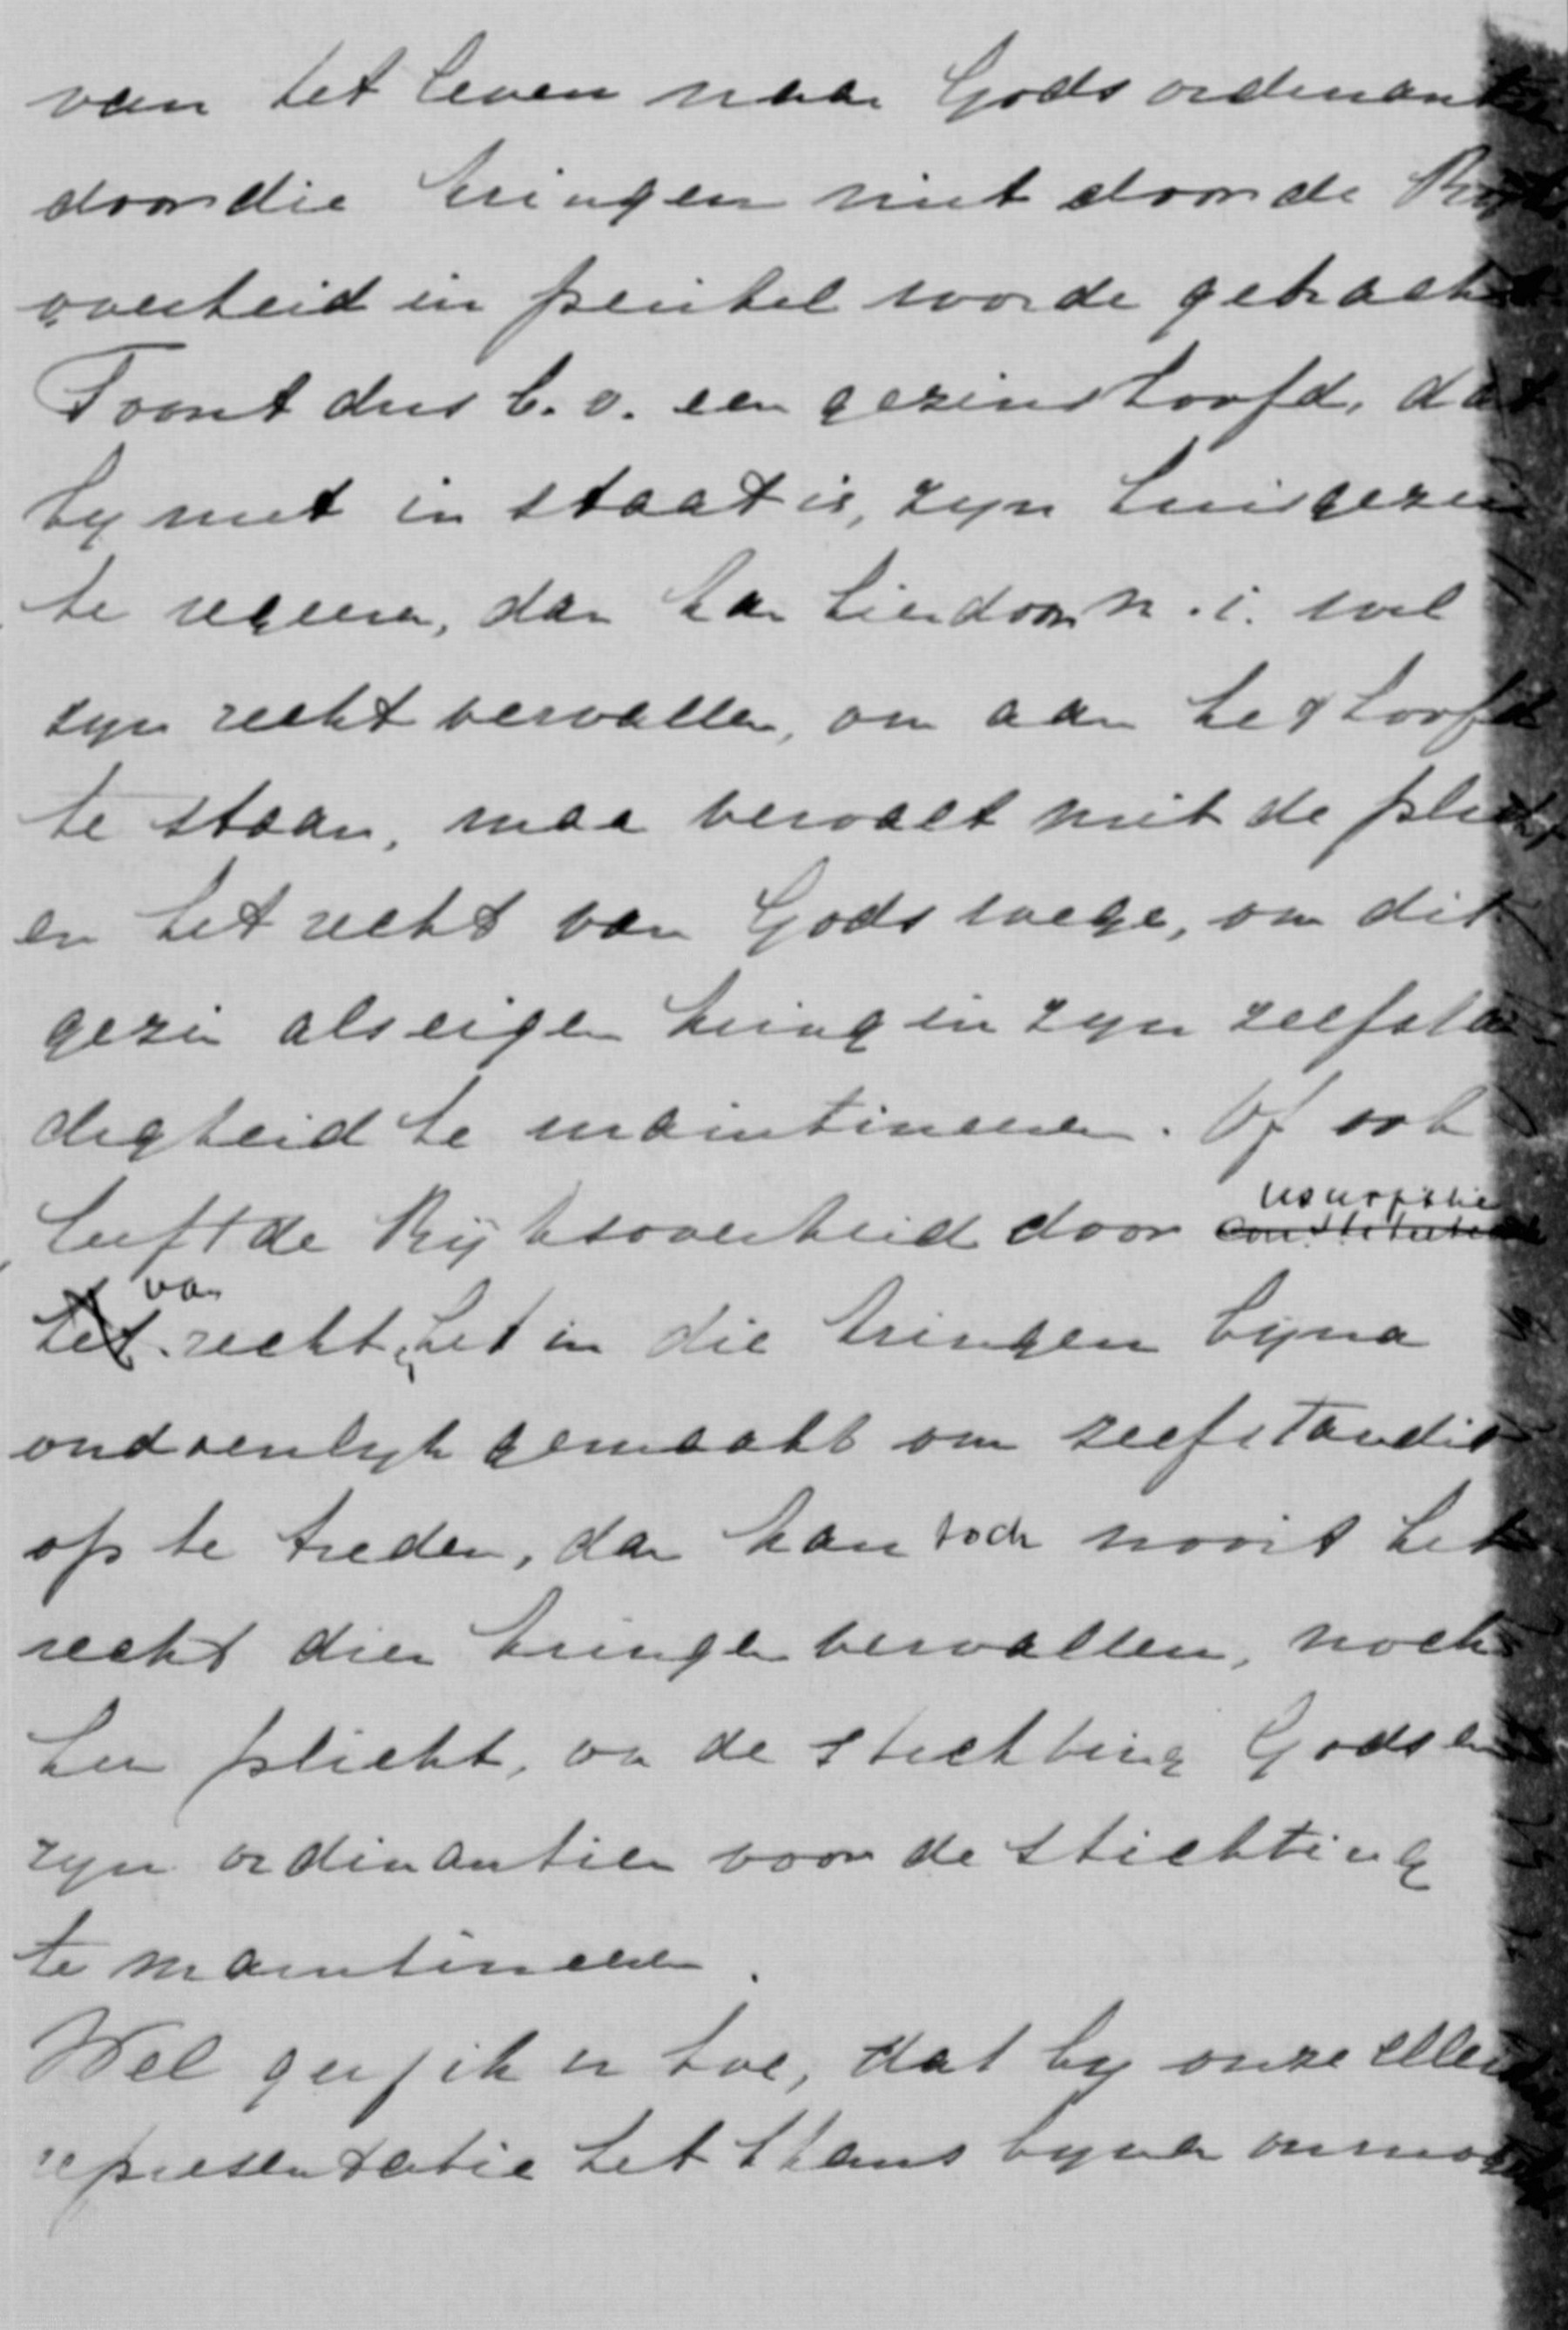 van het leven naar Gods ordinantiën
door die kringen niet door de Rijks
overheid in prikkel worde gebracht
Toont dus b.v. een gezinshoofd, dat
hy niet in staat is, zyn huisgezin
te regeeren, dan kan hierdoor m.i. wel
zyn recht vervallen, om aan het hoofd
te staan, maar vervalt niet de plicht
en het recht van Godswege, om dit
gezin als eigen kring in zyn zelfstan
digheid te maintineeren. Of ook
heeft de Rijksoverheid door usurpatie
van recht, het in die kringen byna
ondoenlyk gemaakt om zelfstandig
op te treden, dan kan toch nooit het
recht dier kringen vervallen, noch
hun plicht, om de stichting Gods en
zyn ordinantien voor de stichting
te maintineeren.
Wel geef ik u toe, dat by onze
representatie het thans byna